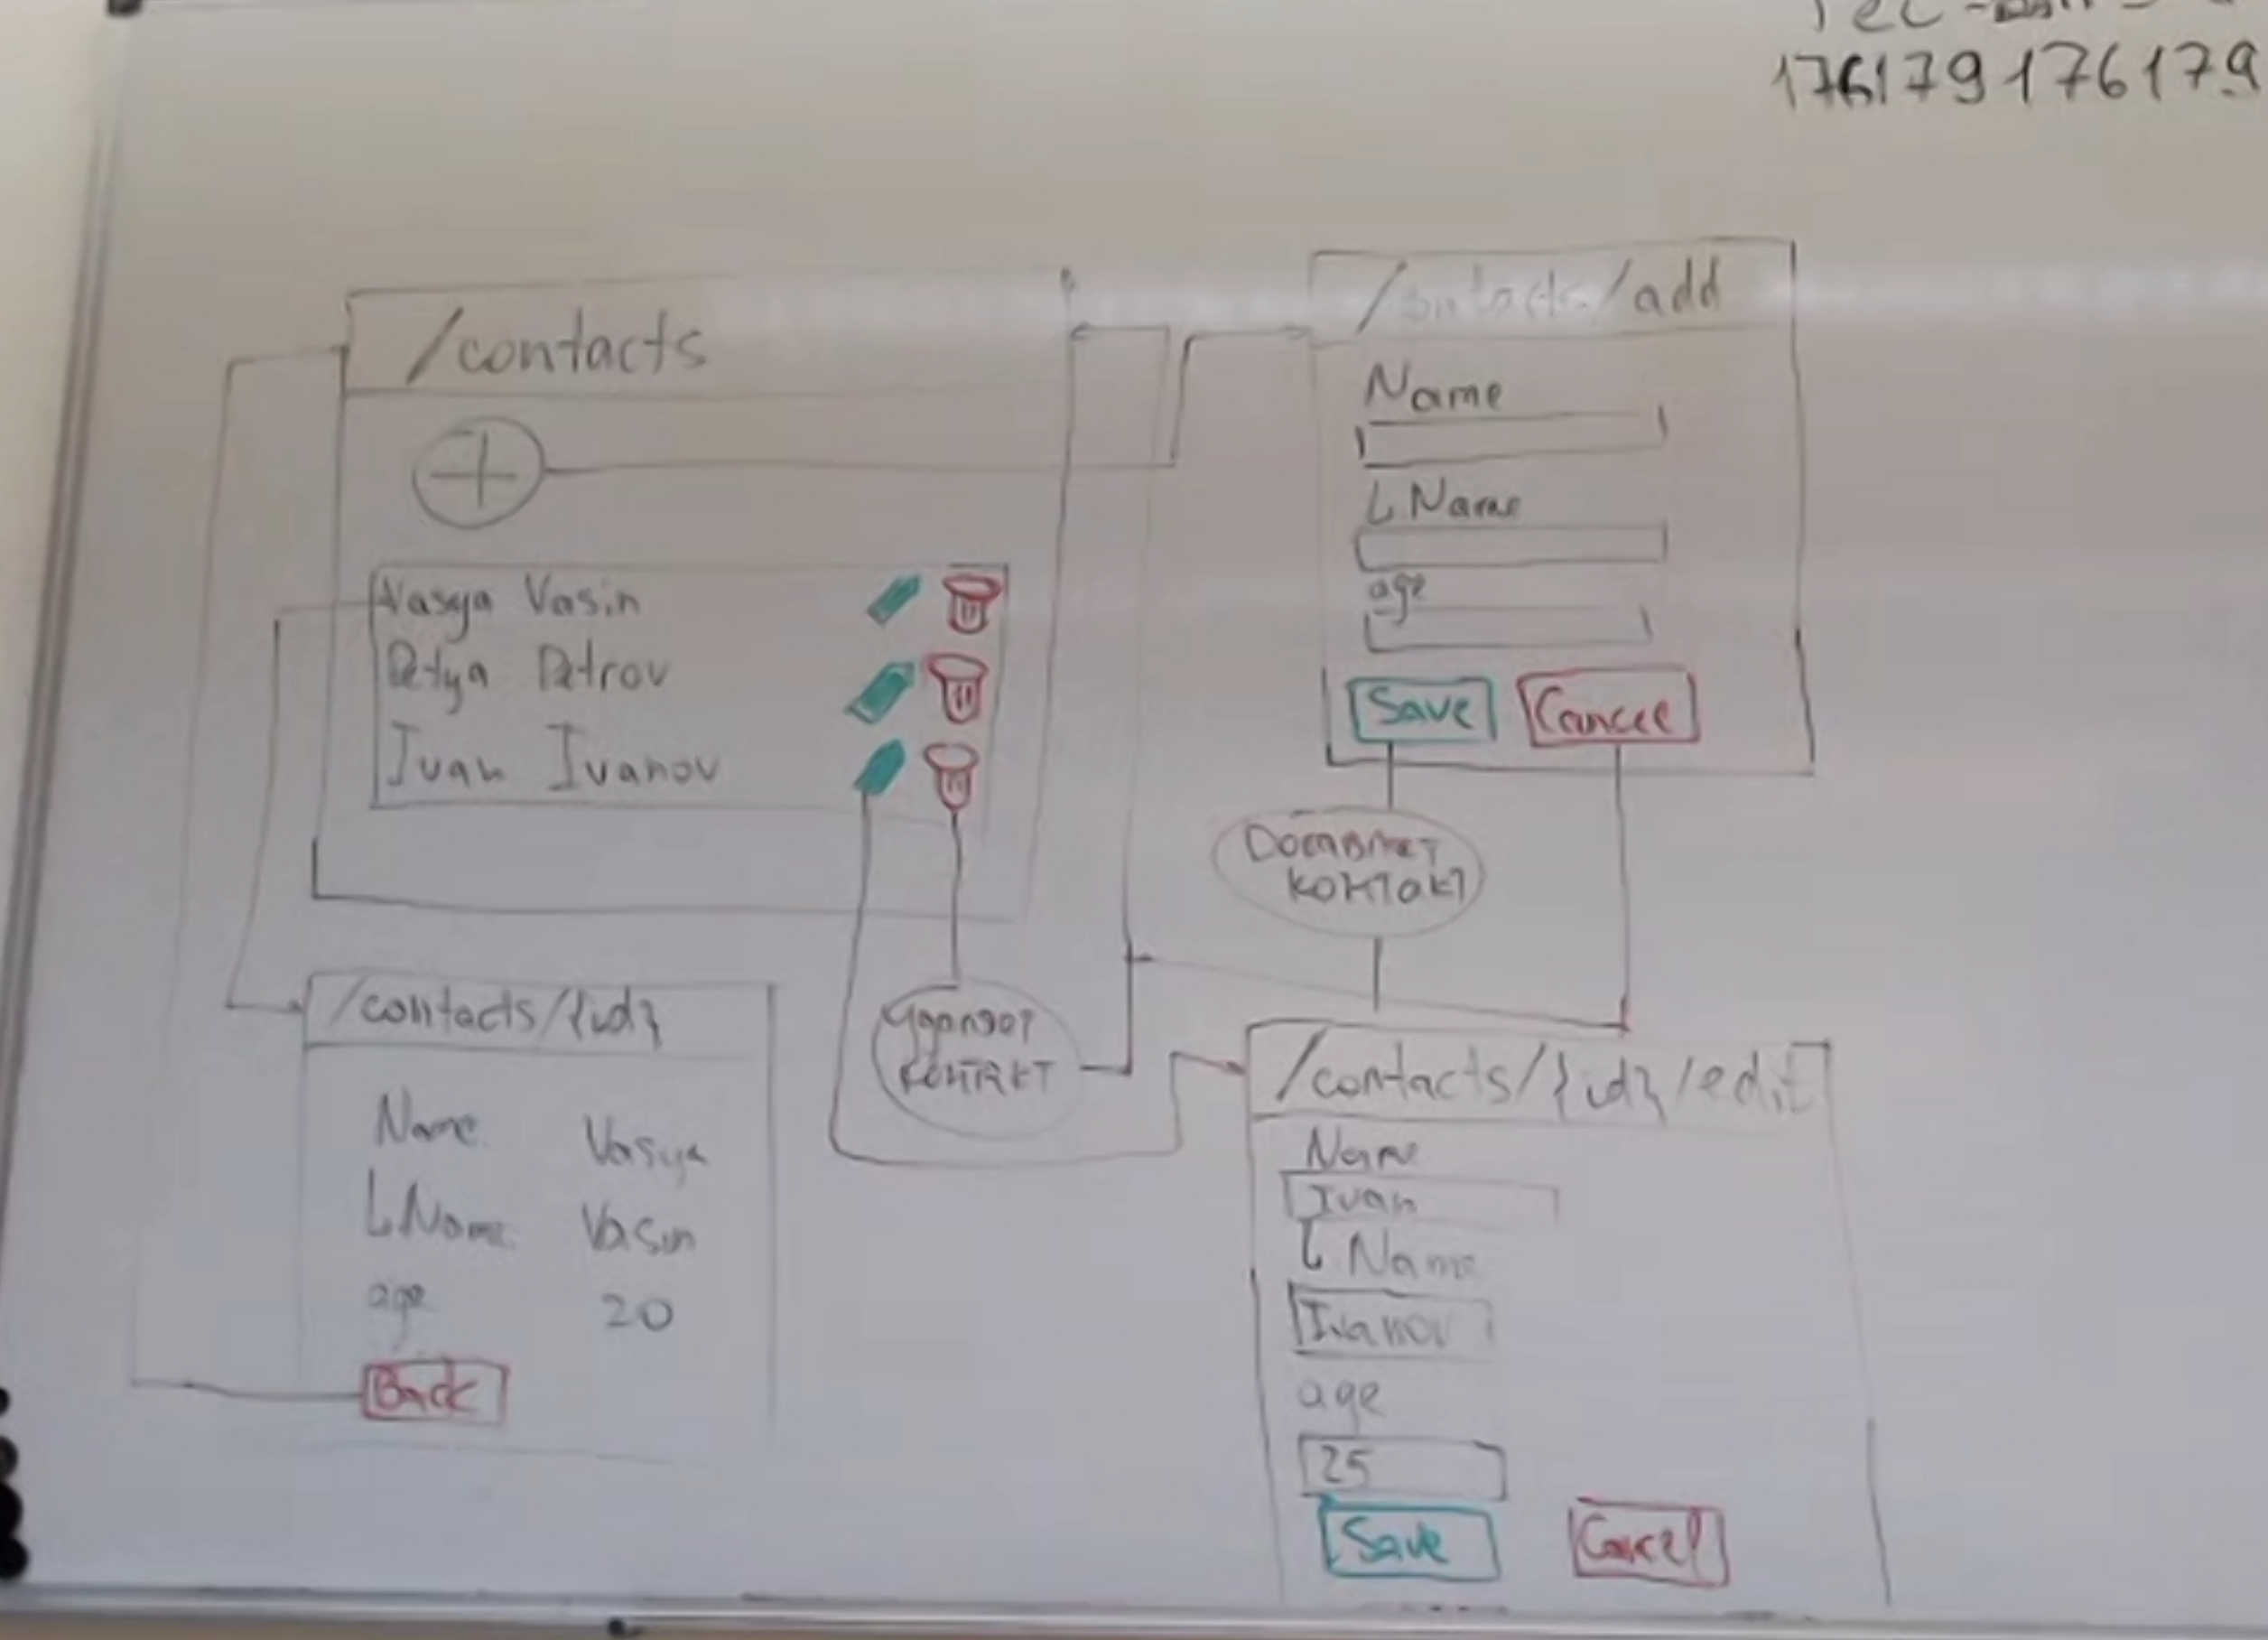 176179176179
/contacts
Vasya Vasin
Petya Petrov
Ivan Ivanov
/contacts/add
Name
L Name
age
Save Cancel
контакт
контакт
/contacts/{id}
Name Vasya
L Name Vasin
age 20
Back
/contacts/{id}/edit
Name
Ivan
L Name
Ivanov
age
25
Save Cancel